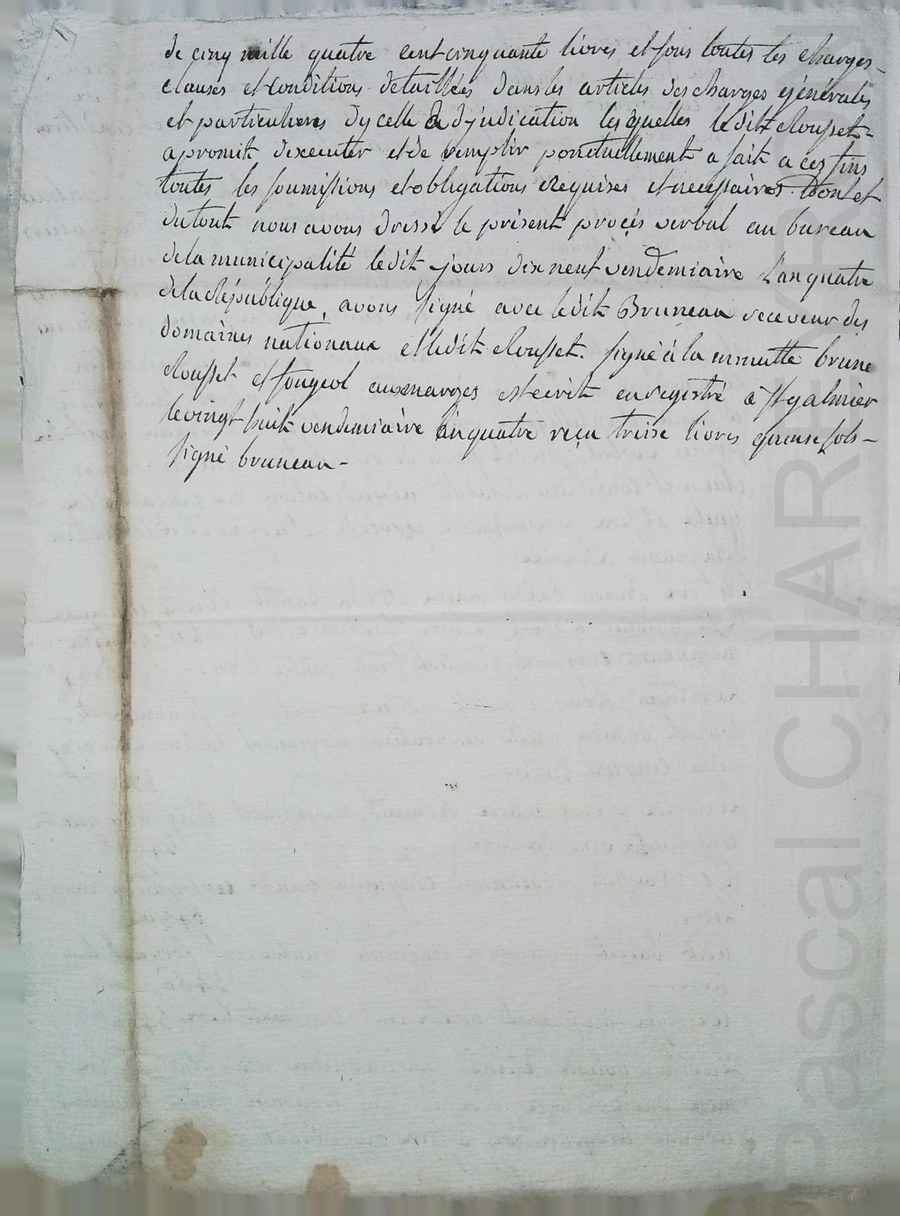 de cinq mille quatre cent cinquante livres et sous toutes les charges
clauses et conditions detaillées dans les articles des charges générales
et particulieres dycelle adjudication les quelles ledit Clousset
a promit dexecuter et de remplir ponctuellement a fait a ces fins
toutes les soumissions et obligations requises et necessaires. Dont et
du tout nous avons dressé le présent procés verbal au bureau
de la municipalité ledit jours dix neuf vendemiaire l'an quatre
de la République, avons signé avec ledit Bruneau receveur des
domaines nationaux et ledit Clousset. signé à la minutte brune
Clousset et fougerol aux marges est ecrit enregistré à St galmier
le vingt huit vendemiaire an quatre reçu treise livres quinse sols -
signé bruneau -
Pascal CHAREYRON